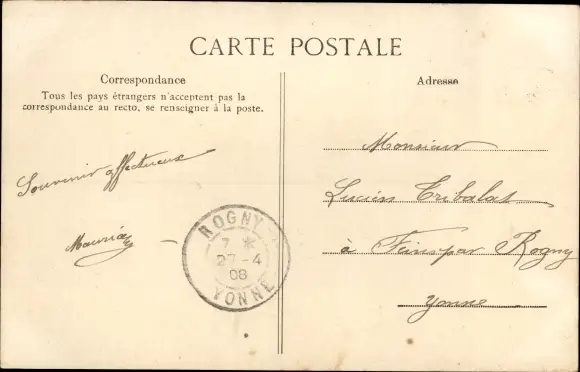 CARTE POSTALE
Correspondance
Tous les pays étrangers n'acceptent pas la
correspondance au recto, se renseigner à la poste.
Adresse
Souvenir affectueux
Maurice
ROGNY
7 *
27-4
08
YONNE
Monsieur
Lucien Tribalat
à Fins par Rogny
Yonne